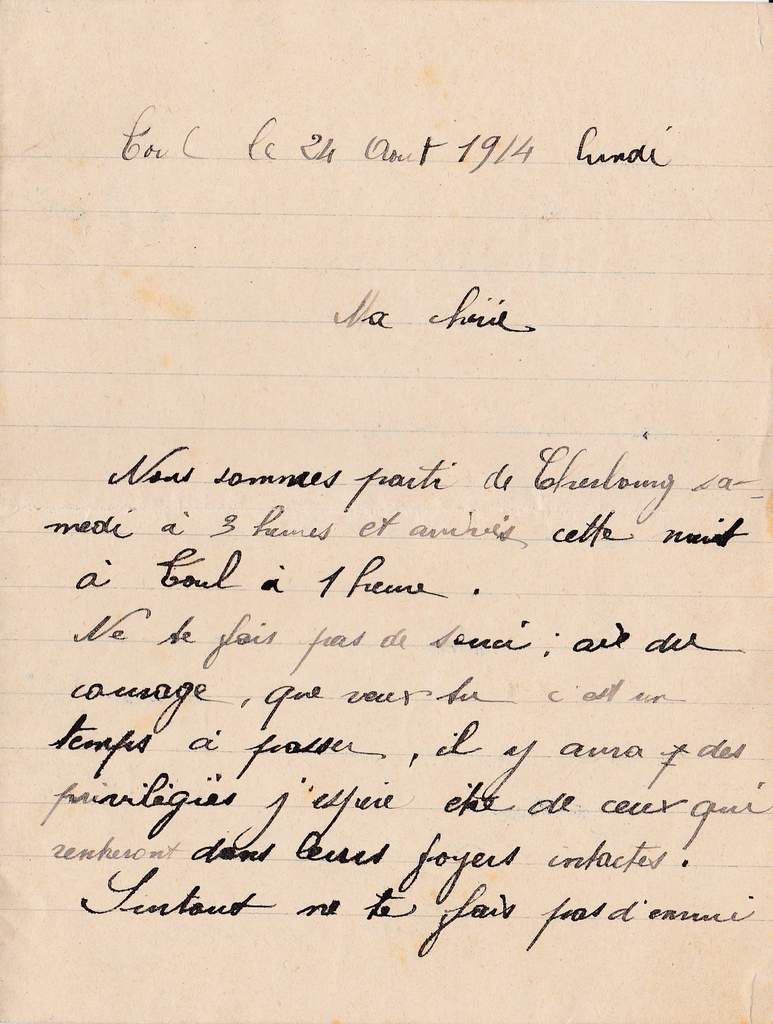 Toul le 24 Aout 1914 lundi
Ma chérie
Nous sommes parti de Cherbourg sa-
medi à 3 heures et arrivés cette nuit
à Toul à 1 heure .
Ne te fais pas de souci ; aie du
courage , que veux tu c'est un
temps à passer , il y aura des
priviligiés j'espère être de ceux qui
rentreront dans leurs foyers intactes .
Surtout ne te fais pas d'ennui